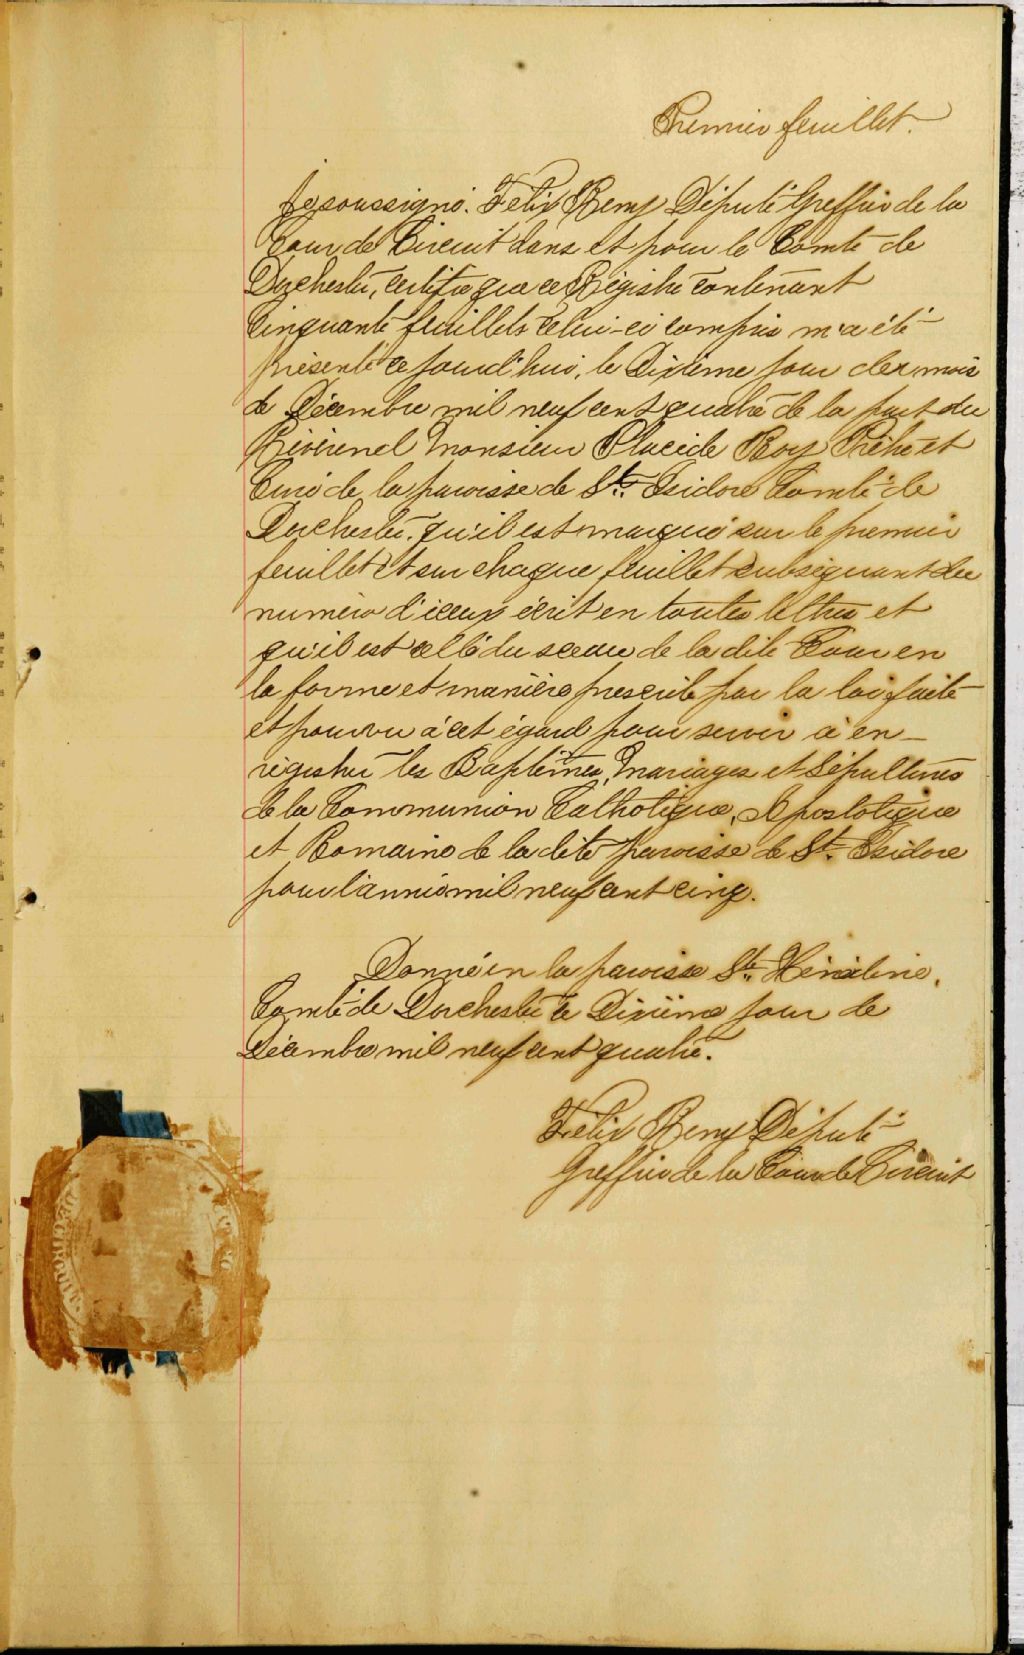 Premier feuillet.
Je soussigné. Felix Remy Député Greffier de la
Cour de Circuit dans et pour le Comté de
Dorchester, certifie que ce Régistre contenant
Cinquante feuillets celui-ci compris m'a été
présenté ce jourd'hui, le Dixième jour du mois
de Décembre mil neuf cent quatre de la part du
Révérend Monsieur Placide Roy Prêtre et
Curé de la paroisse de St. Isidore Comté de
Dorchester. qu'il est marqué sur le premier
feuillet et sur chaque feuillet subséquant du
numéro d'iceux écrit en toutes lettres et
qu'il est scellé du sceau de la dite Cour en
la forme et manière prescrite par la loi faite
et pourvu à cet égard pour servir à en-
régistrer les Baptêmes, Mariages et Sépultures
de la Communion Catholique, Apostolique
et Romaine de la dite paroisse de St. Isidore
pour l'année mil neuf cent cinq.
Donné en la paroisse Ste. Hénédine,
Comté de Dorchester ce Dixième jour de
Décembre mil neuf cent quatre.
Félix Remy Député
Greffier de la Cour de Circuit